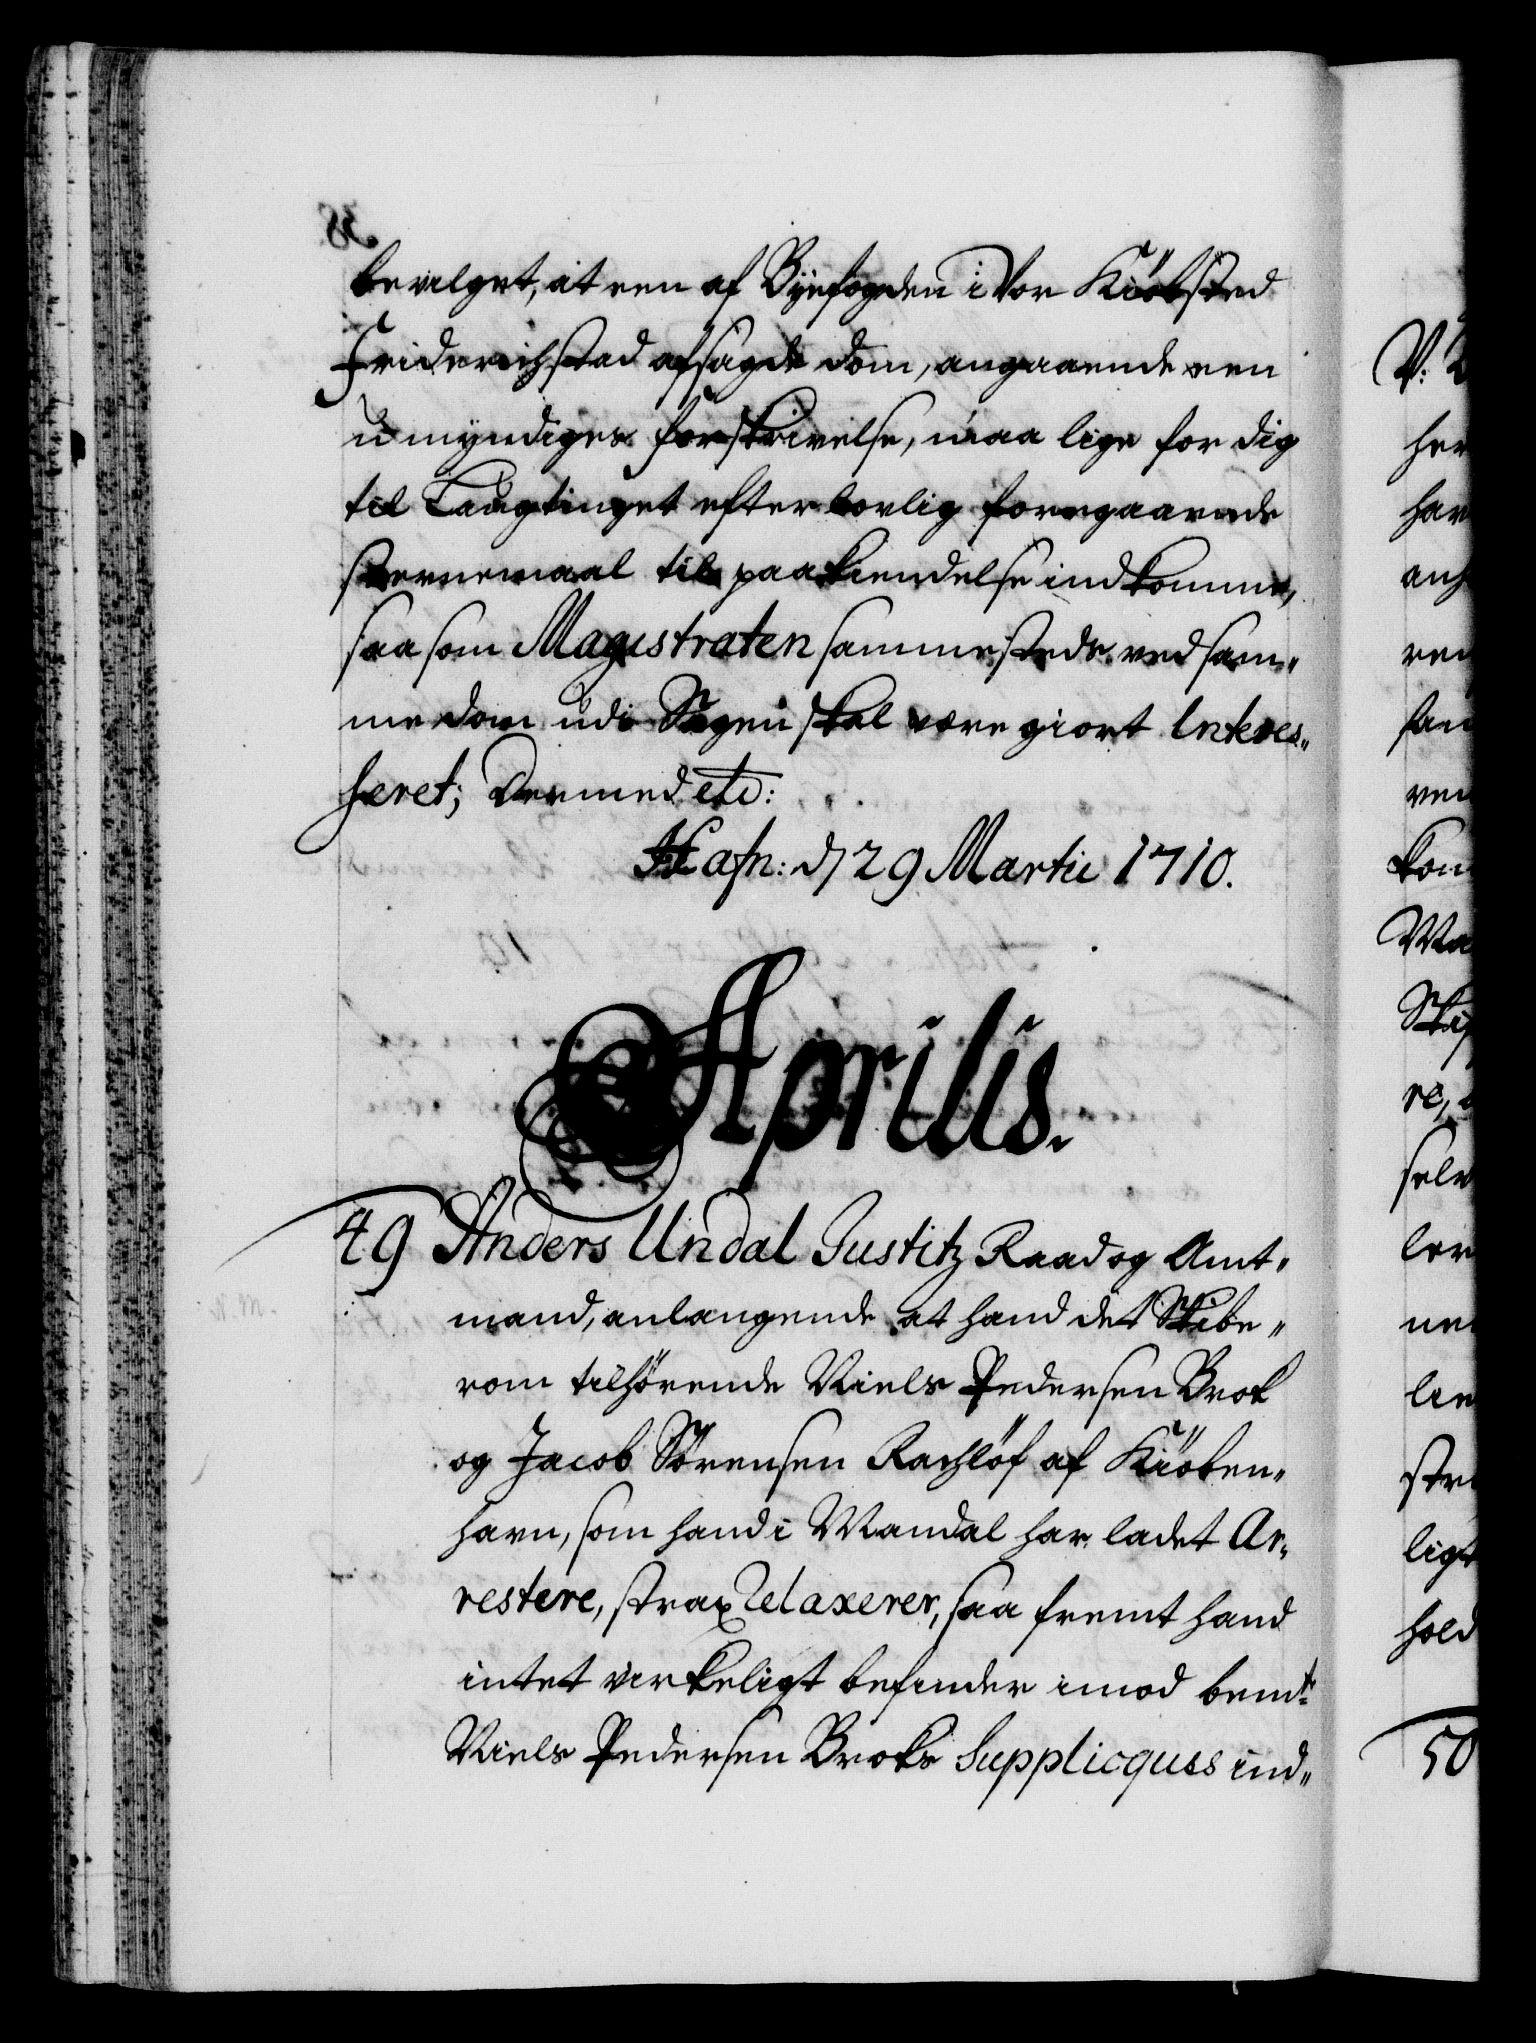 bevilget, at een af Byefogden i Vor Kiöbsted
Friderichstad afsagde dom, angaaende een
umyndiges forskrivelse, maa lige for dig
til Laugtinget efter lovlig foregaaende
stevnemaal til paakiendelse indkomme,
saa som Magistraten sammestedz ved sam„
me dom udi Sagen skal være giort Interes„
seret; Dermed etc:
Hafn: d 29 Martii 1710.
Aprilis.
49 Anders Undal Justitz Raad og Amt„
mand, anlangende at hand det Skibe„
rom tilhörende Niels Pedersen Brok
og Jacob Sörensen Rachlöf af Kiöben„
havn, som hand i Mandal har ladet Ar„
restere, strax relaxerer, saa fremt hand
intet virkeligt befinder imod bemt:
Niels Pedersen Broks Supplicqves ind„
50